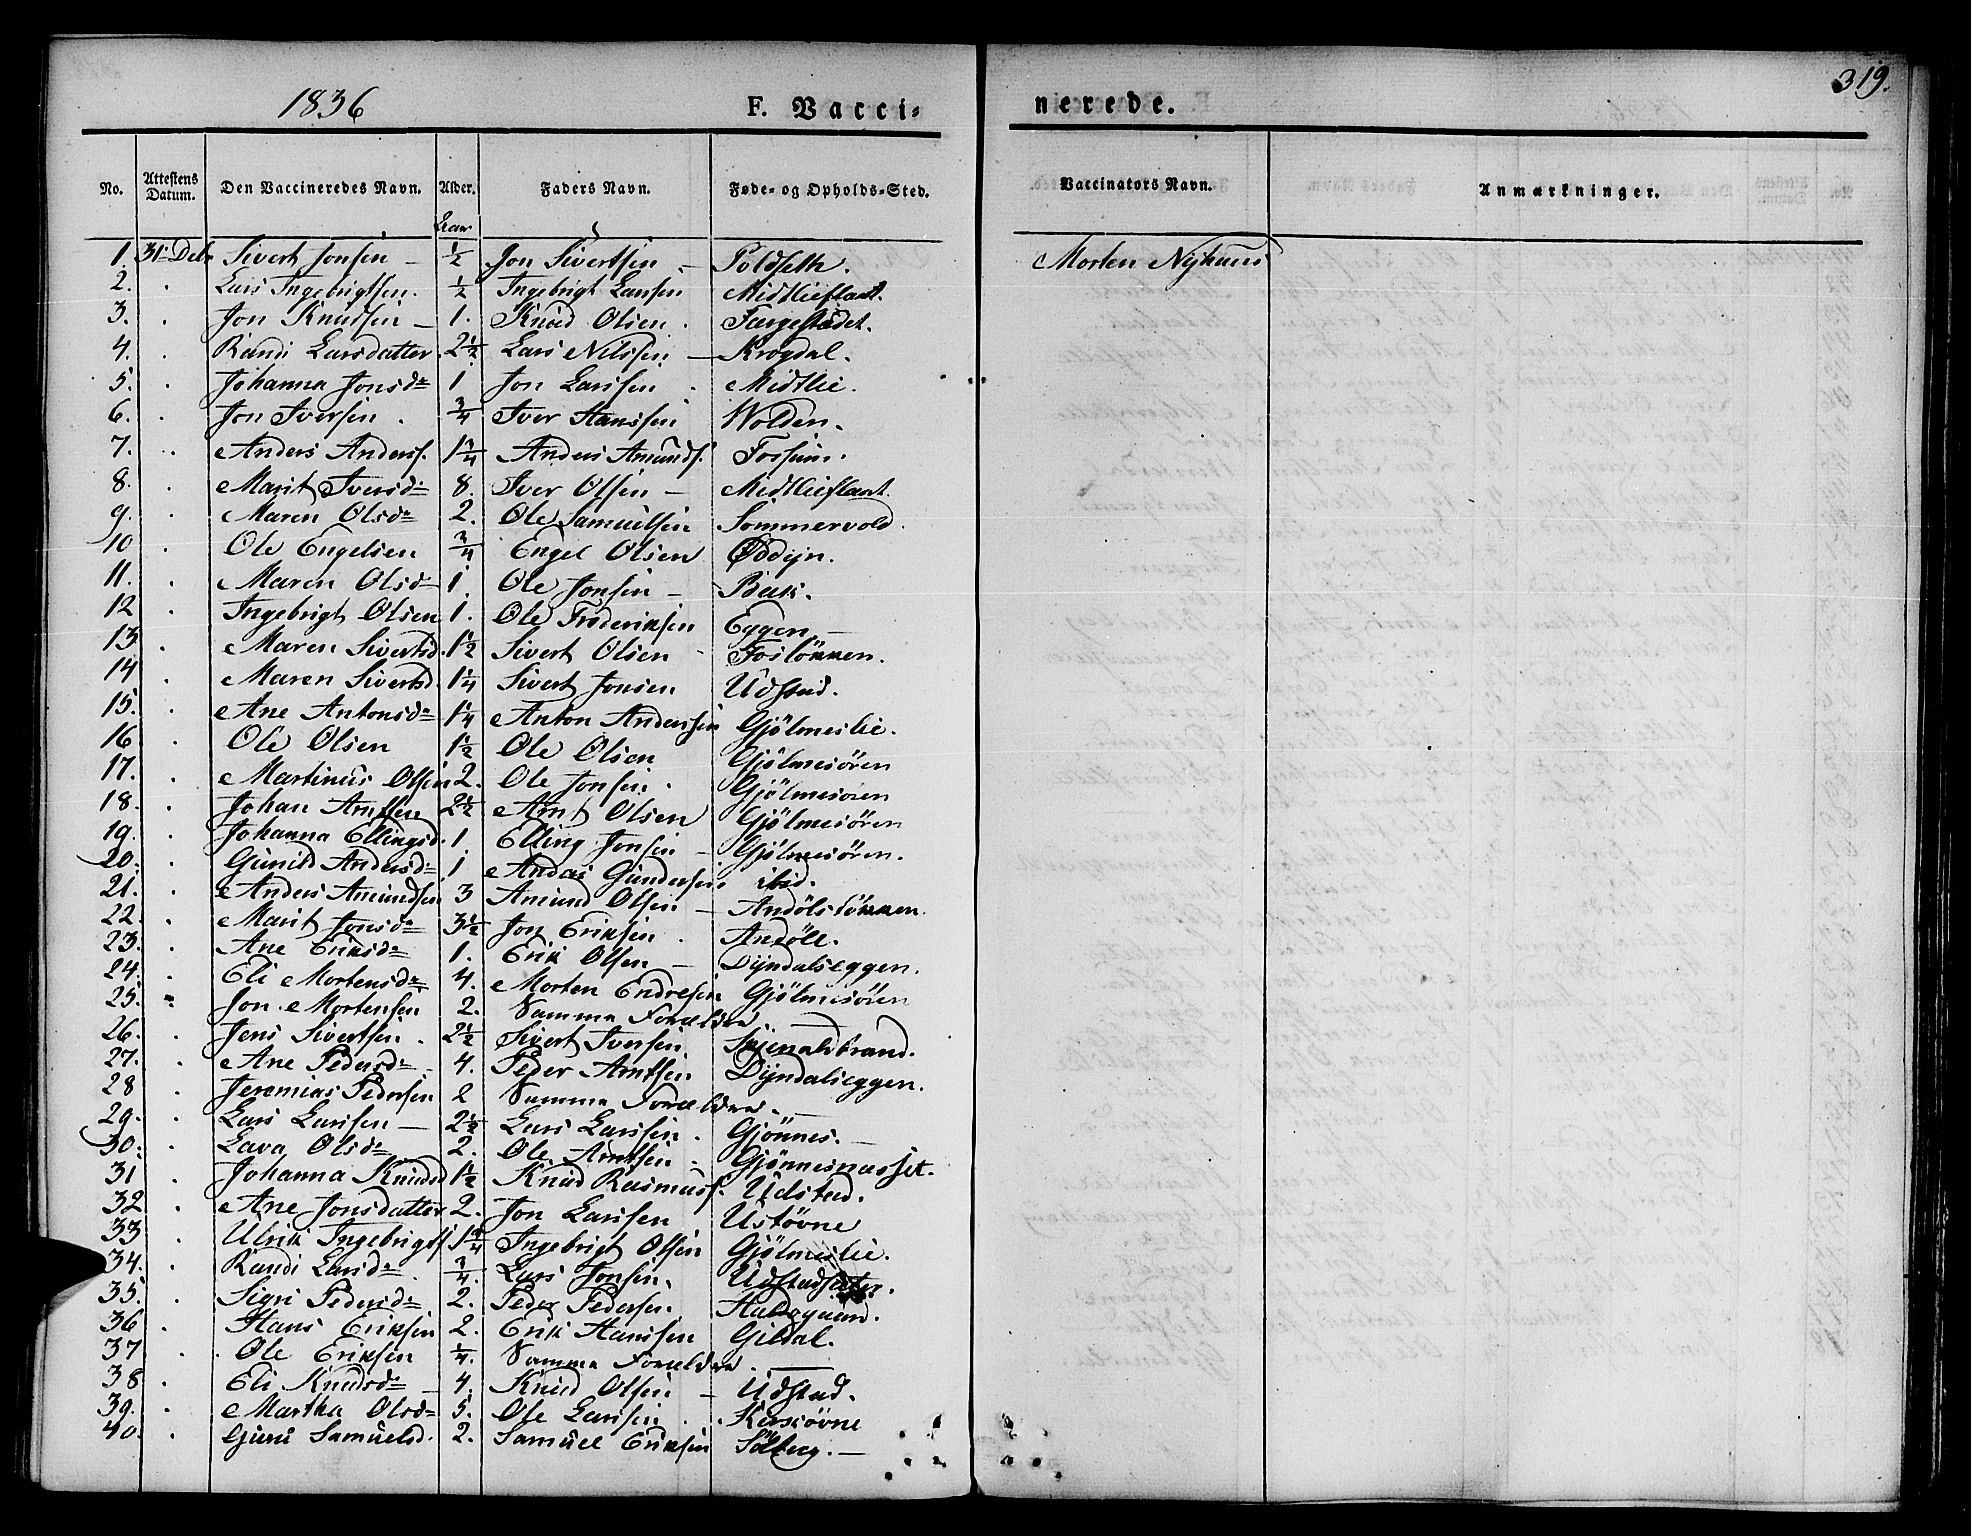 1836 F. Vacci= nerede. 319.
No. Attestens Datum. Den Vaccineredes Navn. Alder. Faders Navn. Føde- og Opholds-Sted. Vaccinators Navn. Anmærkninger.
1. 31 Dcbr Sivert Jonsen — ½ Jon Sivertsen — Poldseth. Morten Nyhuus
2. . Lars Ingebrigtsen. ½ Ingebrigt Larsen Midtlieflaat.
3. . Jon Knudsen — 1. Knud Olsen . Færgestadet.
4. . Randi Larsdatter. 2½ Lars Nilssen — Krogdal.
5. . Johanna Jonsd. 1 Jon Larsen . Midtlie.
6. . Jon Iversen . ¾ Iver Hanssen Wolden.
7. . Anders Anders. 1¾ Anders Amunds. Fossum.
8. . Marit Iversd. 8. Iver Olsen — Midtlieflaat.
9. . Maren Olsd. 2. Ole Samuelsen Sommervold.
10 . Ole Engelsen ¾ Engel Olsen Øddyn.
11. . Maren Olsd. 1. Ole Jonsen — Bæk.
12 . Ingebrigt Olsen 1. Ole Frederiksen Eggen —
13 . Maren Sivertsd. 1½ Sivert Olsen Foslökken.
14 . Maren Sivertsd. 1¼ Sivert Jonsen Udstad.
15. . Ane Antonsd. 1¼ Anton Anderssen Gjölmeslie.
16 . Ole Olsen 1½ Ole Olsen Gjölmesören
17. . Martinus Olsen 2. Ole Jonsen . Gjölmesören
18. . Johan Arntsen 2½ Arnt Olsen Gjölmesören
19. . Johanna Ellingsd. 1. Elling Jonsen — Gjölmesören.
20. . Gunild Andersd. 1 Anders Gundersen ibid.
21. . Anders Amundsen 3 Amund Olsen — Andölslökken.
22. . Marit Jonsd. 3½ Jon Eriksen . Andöll.
23. . Ane Eriksd. 1. Erik Olsen — Dyndalseggen.
24. . Eli Mortensd. 4. Morten Endresen Gjölmesören
25. Jon Mortensen 2. Samme Forældre
26. . Jens Sivertsen . 2½ Sivert Iversen
27. . Ane Pedersd. 4. Peder Arntsen Dyndalseggen.
28 . Jeremias Pedersen 2 Samme Forældre. —
29. . Lars Larsen — 2½ Lars Larssen . Gjönnes. —
30. . Lava Olsd. 2. Ole Arntsen . Gjönnesnasset.
31 . Johanna Knudsd 1½ Knud Rasmuss. Udstad.
32 . Ane Jonsdatter 2. Jon Larssen Ustövne
33 . Ulrik Ingebrigts. 1¾ Ingebrigt Olsen Gjölmeslie.
34. . Randi Larsd. ¾. Lars Jonsen.
35. . Sigri Pedersd. 2. Peder Pedersen.
36 . Hans Eriksen 2. Erik Hanssen Gildal.
37 . Ole Eriksen ¼. Samme Forældre . —
38 . Eli Knudsd. 4. Knud Olsen — Udstad.
39. . Martha Olsd. 5. Ole Larssen . Korsövne
40. . Guru Samuelsd. 2. Samuel Eriksen Solberg. —